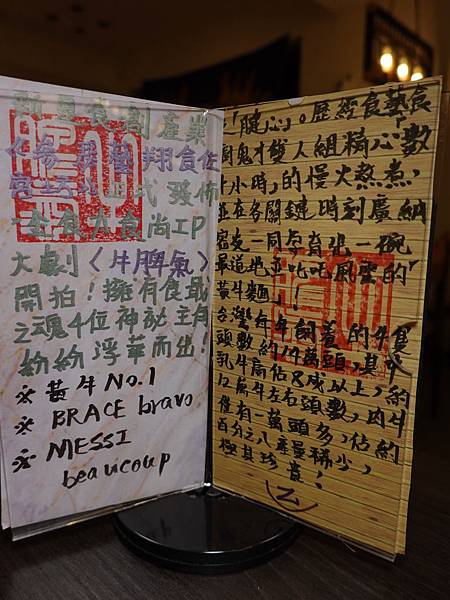 新星食創產業
翔食住
正式發佈
全食大食尚IP
大劇〈牛脾氣〉
開拍！擁有食戰
之魂4位神祕主角
紛紛浮華而出！
※ 黃牛No.1
※ BRACE bravo
※ MESSI
beaucoup
「腱心」。歷經食藝食
廚鬼才雙人組精心數
「小時」的慢火熬煮，
並在各關鍵時刻廣納
密友一同孕育出一碗
最道地並叱吒風雲的「
黃牛麵」！
台灣每年飼養的牛隻
頭數約14萬頭，其中
乳牛高佔8成以上，約
12萬牛左右頭數，肉牛
僅有一萬頭多，佔約
百分之八產量稀少，
極其珍貴！
乙